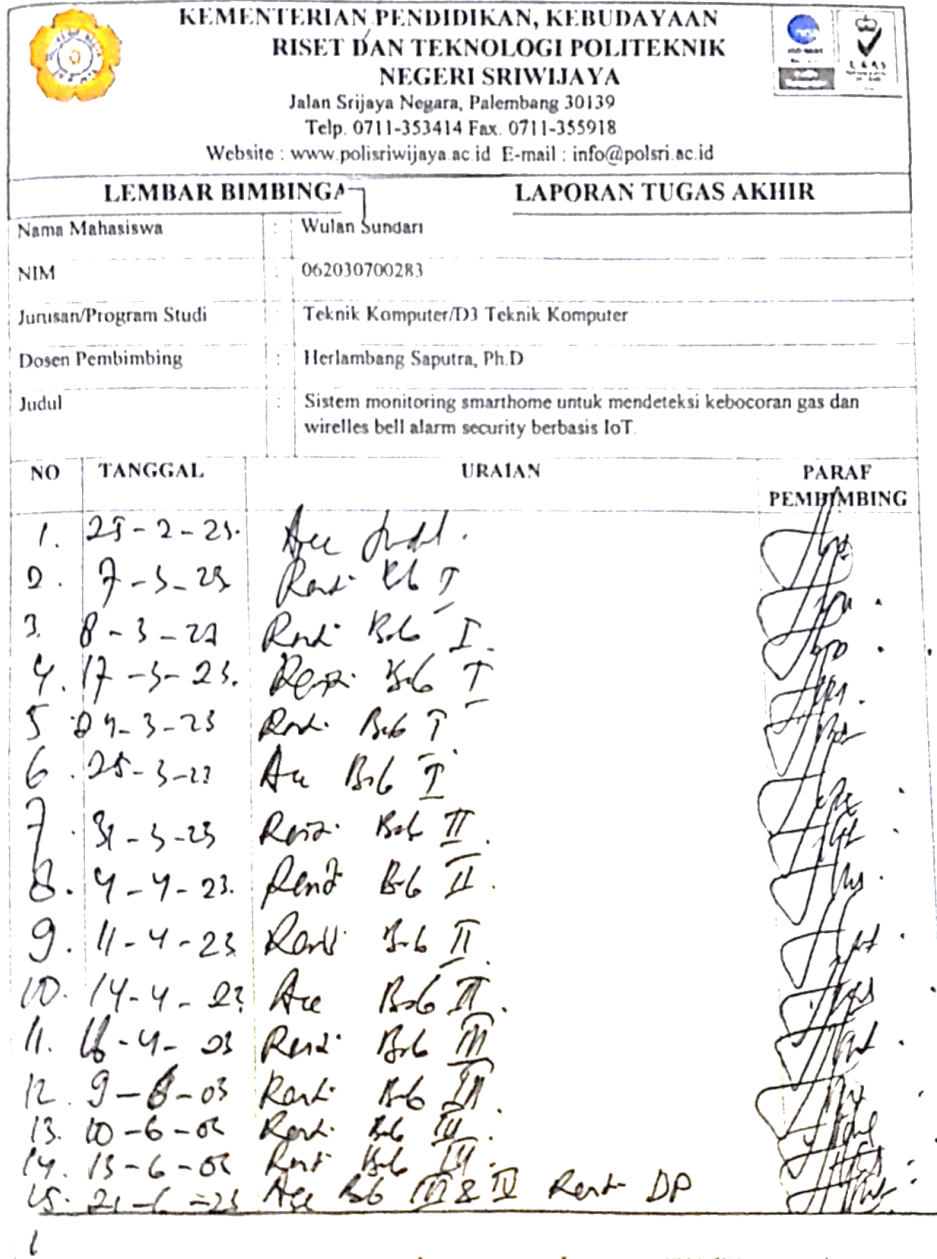 KEMENTERIAN PENDIDIKAN, KEBUDAYAAN
RISET DAN TEKNOLOGI POLITEKNIK
NEGERI SRIWIJAYA
Jalan Srijaya Negara, Palembang 30139
Telp. 0711-353414 Fax. 0711-355918
Website : www.polisriwijaya.ac.id E-mail : info@polsri.ac.id
UKAS
LEMBAR BIMBINGA LAPORAN TUGAS AKHIR
Nama Mahasiswa : Wulan Sundari
NIM : 062030700283
Jurusan/Program Studi : Teknik Komputer/D3 Teknik Komputer
Dosen Pembimbing : Herlambang Saputra, Ph.D
Judul : Sistem monitoring smarthome untuk mendeteksi kebocoran gas dan
wirelles bell alarm security berbasis IoT.
NO TANGGAL URAIAN PARAF
PEMBIMBING
1. 25-2-23. Acc Judul.
2. 7-3-23 Revisi Bab I
3. 8-3-23 Revisi Bab I.
4. 17-3-23. Revisi Bab I
5 24-3-23 Revisi Bab I
6. 25-3-23 Acc Bab I.
7. 31-3-23 Revisi Bab II.
8. 4-4-23. Revisi Bab II.
9. 11-4-23 Revisi Bab II.
10. 14-4-23 Acc Bab II.
11. 18-4-23 Revisi Bab III.
12. 9-6-23 Revisi Bab III.
13. 10-6-23 Revisi Bab
14. 13-6-23 Revisi Bab
15. 21-6-23 Acc Bab III & IV Revisi DP